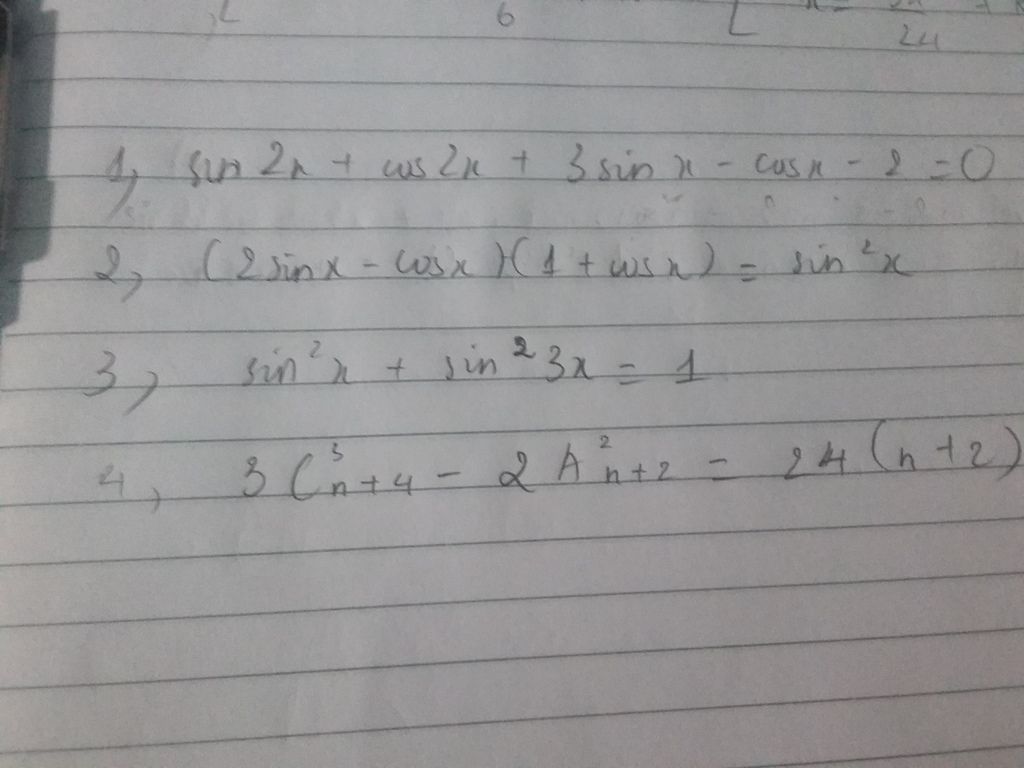 6
24
1, sin 2x + cos 2x + 3 sin x - cos x - 2 = 0
2, (2 sin x - cos x)(1 + cos x) = sin²x
3, sin²x + sin²3x = 1
4, 3C³n+4 - 2A²n+2 = 24(n+2)